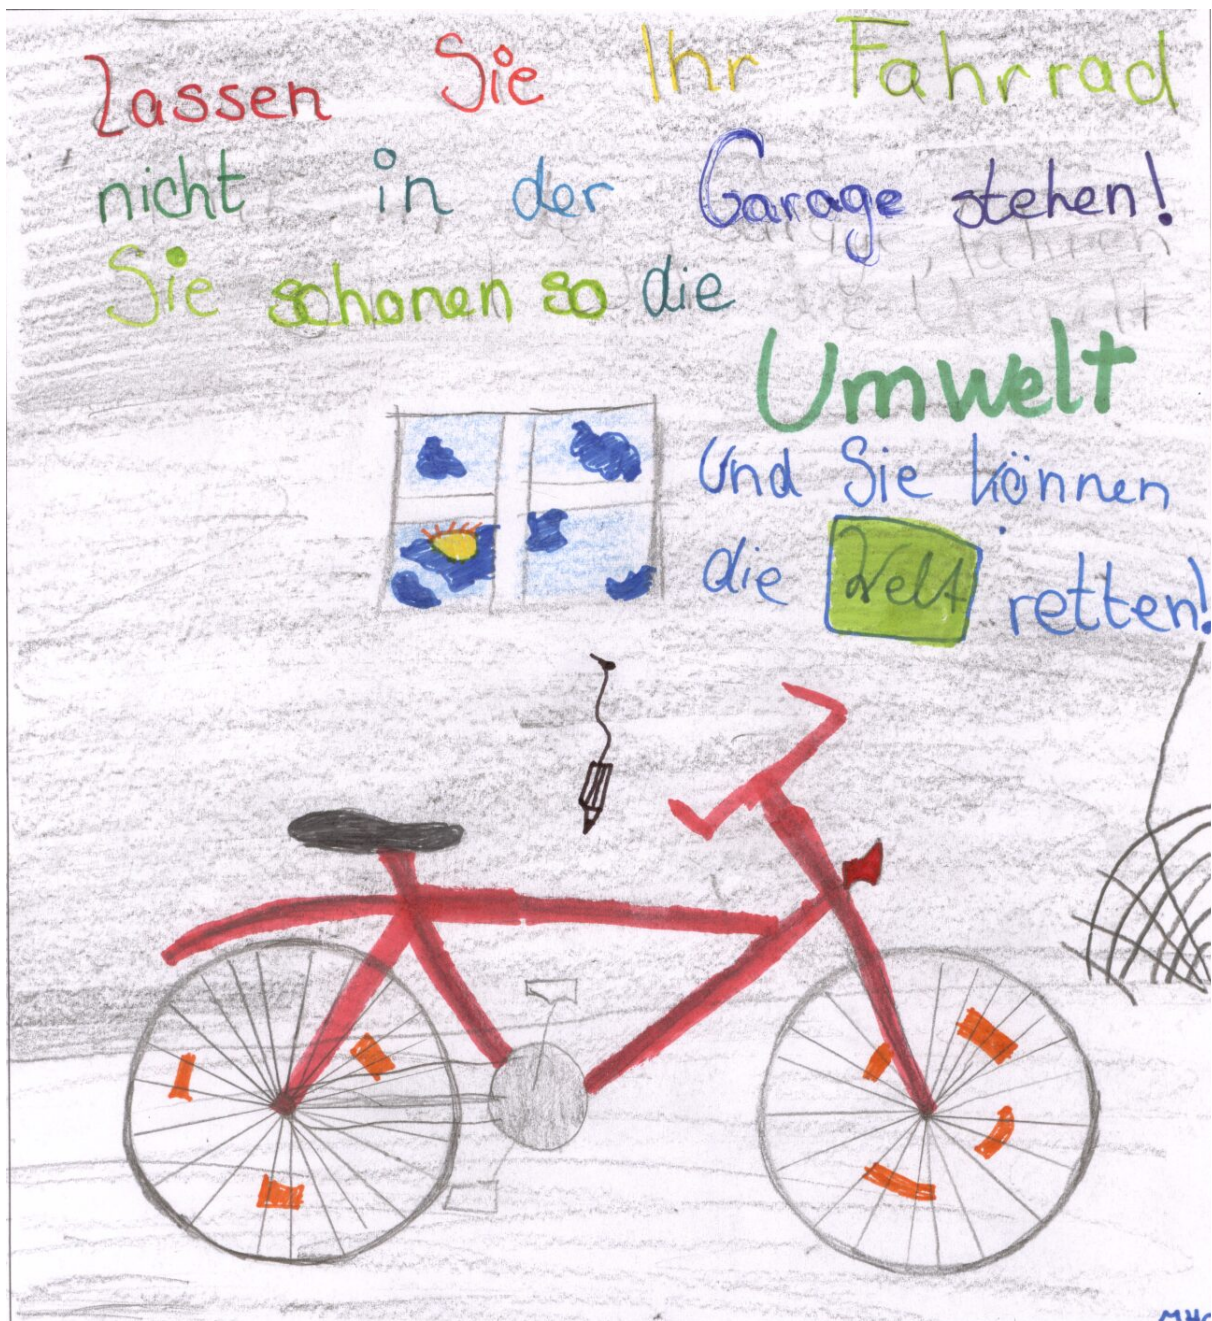 Lassen Sie Ihr Fahrrad
nicht in der Garage stehen!
Sie schonen so die
Umwelt
Und Sie können
die Welt retten!